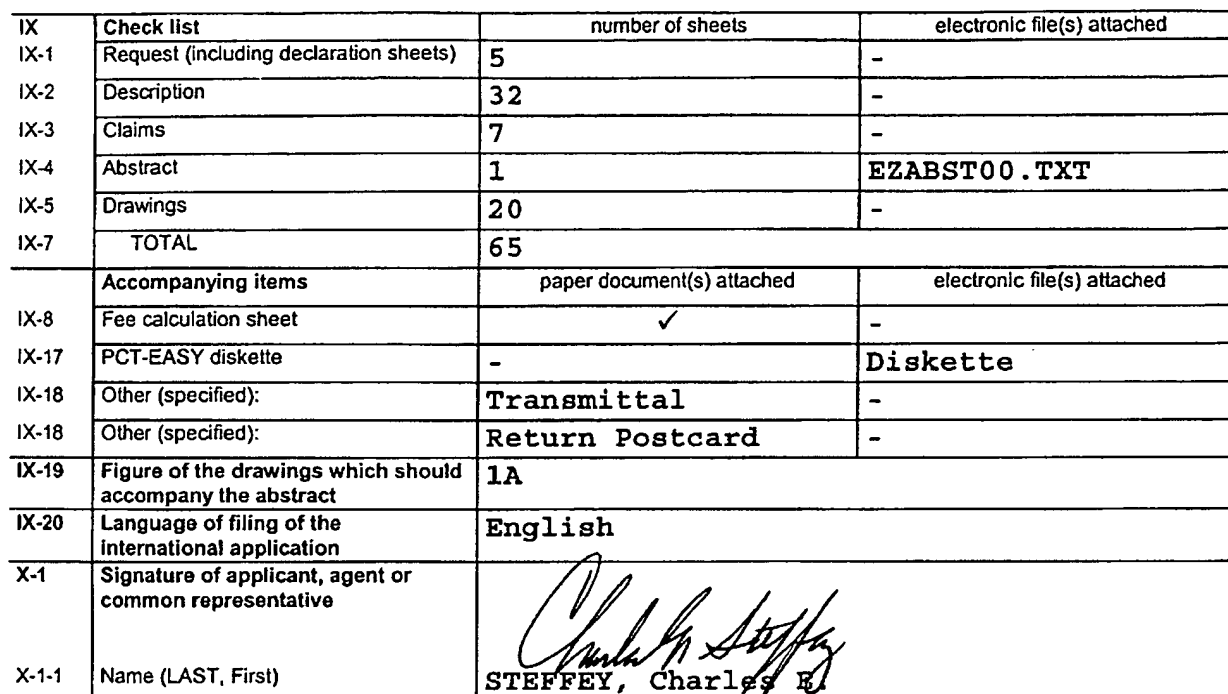 IX Check list number of sheets electronic file(s) attached
IX-1 Request (including declaration sheets) 5 -
IX-2 Description 32 -
IX-3 Claims 7 -
IX-4 Abstract 1 EZABST00.TXT
IX-5 Drawings 20 -
IX-7 TOTAL 65
Accompanying items paper document(s) attached electronic file(s) attached
IX-8 Fee calculation sheet ✓ -
IX-17 PCT-EASY diskette - Diskette
IX-18 Other (specified): Transmittal -
IX-18 Other (specified): Return Postcard -
IX-19 Figure of the drawings which should 1A
accompany the abstract
IX-20 Language of filing of the English
international application
X-1 Signature of applicant, agent or
common representative
X-1-1 Name (LAST, First) STEFFEY, Charles E.